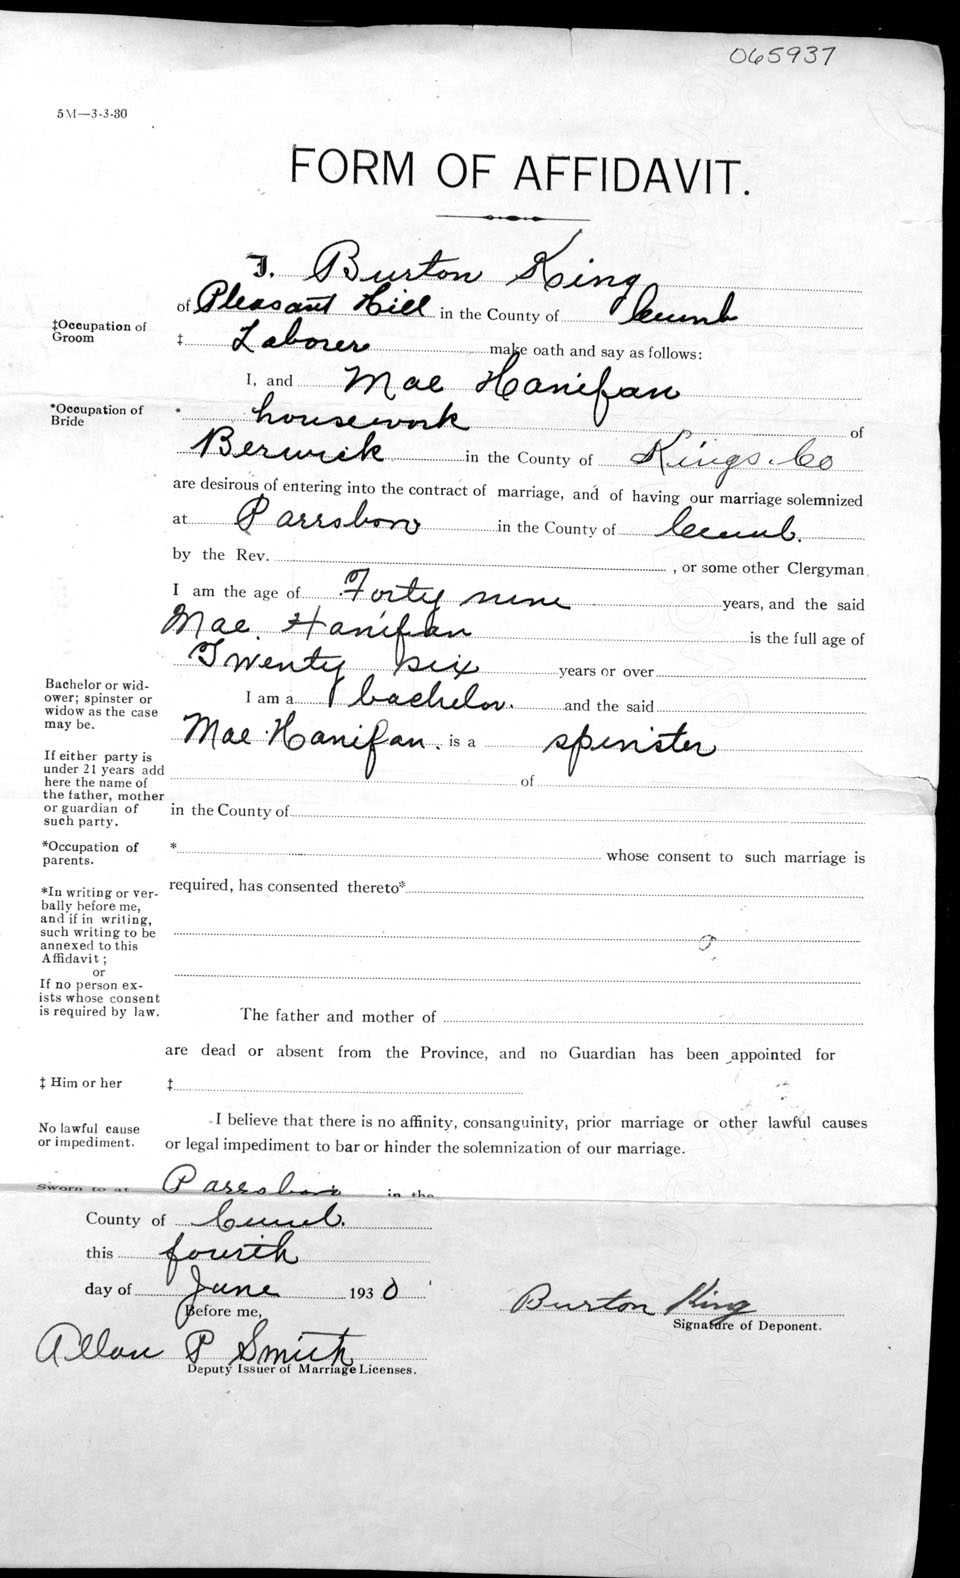 065937
5M—3-3-30
FORM OF AFFIDAVIT.
I, Burton King
of Pleasant Hill in the County of Cumb
‡Occupation of Groom
‡ Laborer make oath and say as follows:
I, and Mae Hanifan
*Occupation of Bride
* housework of
Berwick in the County of Kings Co
are desirous of entering into the contract of marriage, and of having our marriage solemnized
at Parrsboro in the County of Cumb.
by the Rev. , or some other Clergyman
I am the age of Forty nine years, and the said
Mae Hanifan is the full age of
Twenty six years or over
Bachelor or wid-
ower; spinster or
widow as the case
may be.
I am a bachelor. and the said
Mae Hanifan. is a spinster
If either party is
under 21 years add
here the name of
the father, mother
or guardian of
such party.
of
in the County of
*Occupation of
parents.
* whose consent to such marriage is
required, has consented thereto*
*In writing or ver-
bally before me,
and if in writing,
such writing to be
annexed to this
Affidavit;
or
If no person ex-
ists whose consent
is required by law.
The father and mother of
are dead or absent from the Province, and no Guardian has been appointed for
‡ Him or her
‡
No lawful cause
or impediment.
I believe that there is no affinity, consanguinity, prior marriage or other lawful causes
or legal impediment to bar or hinder the solemnization of our marriage.
Sworn to at Parrsboro in the
County of Cumb.
this fourth
day of June 1930
Before me,
Burton King
Signature of Deponent.
Allan P Smith
Deputy Issuer of Marriage Licenses.